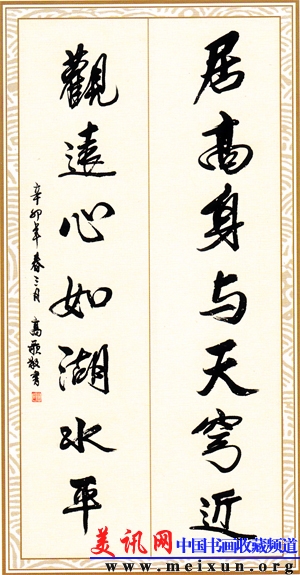 居高身与天穹近
觀遠心如湖水平
辛卯年春三月 高歌敬书
美讯网 中国书画收藏频道
www.meixun.org